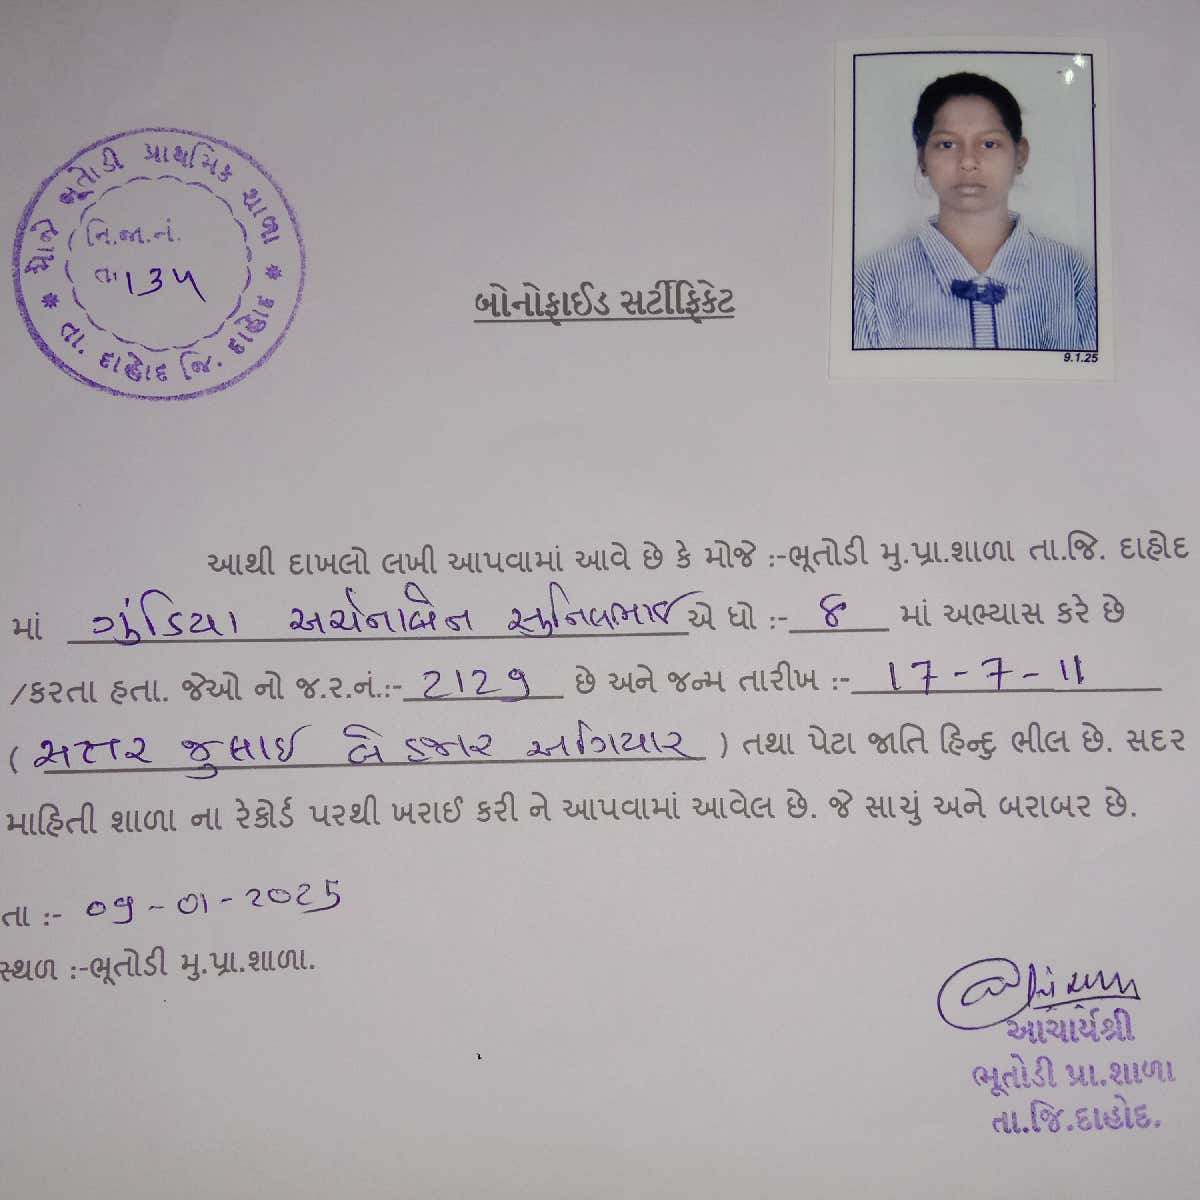 મોજે ભૂતોડી પ્રાથમિક શાળા
નિ.જા.નં.
તા. 134
* તા. દાહોદ જિ. દાહોદ *
9.1.25
બોનોફાઈડ સર્ટીફિકેટ
આથી દાખલો લખી આપવામાં આવે છે કે મોજે :-ભૂતોડી મુ.પ્રા.શાળા તા.જિ. દાહોદ
માં ગુંડિયા અર્ચનાબેન સુનિલભાઈ એ ધો :- 8 માં અભ્યાસ કરે છે
/કરતા હતા. જેઓ નો જ.ર.નં.:- 2129 છે અને જન્મ તારીખ :- 17-7-11
( સત્તર જુલાઈ બે હજાર અગિયાર ) તથા પેટા જાતિ હિન્દુ ભીલ છે. સદર
માહિતી શાળા ના રેકોર્ડ પરથી ખરાઈ કરી ને આપવામાં આવેલ છે. જે સાચું અને બરાબર છે.
તા :- 09-01-2025
સ્થળ :-ભૂતોડી મુ.પ્રા.શાળા.
આચાર્યશ્રી
ભૂતોડી પ્રા.શાળા
તા.જિ.દાહોદ.